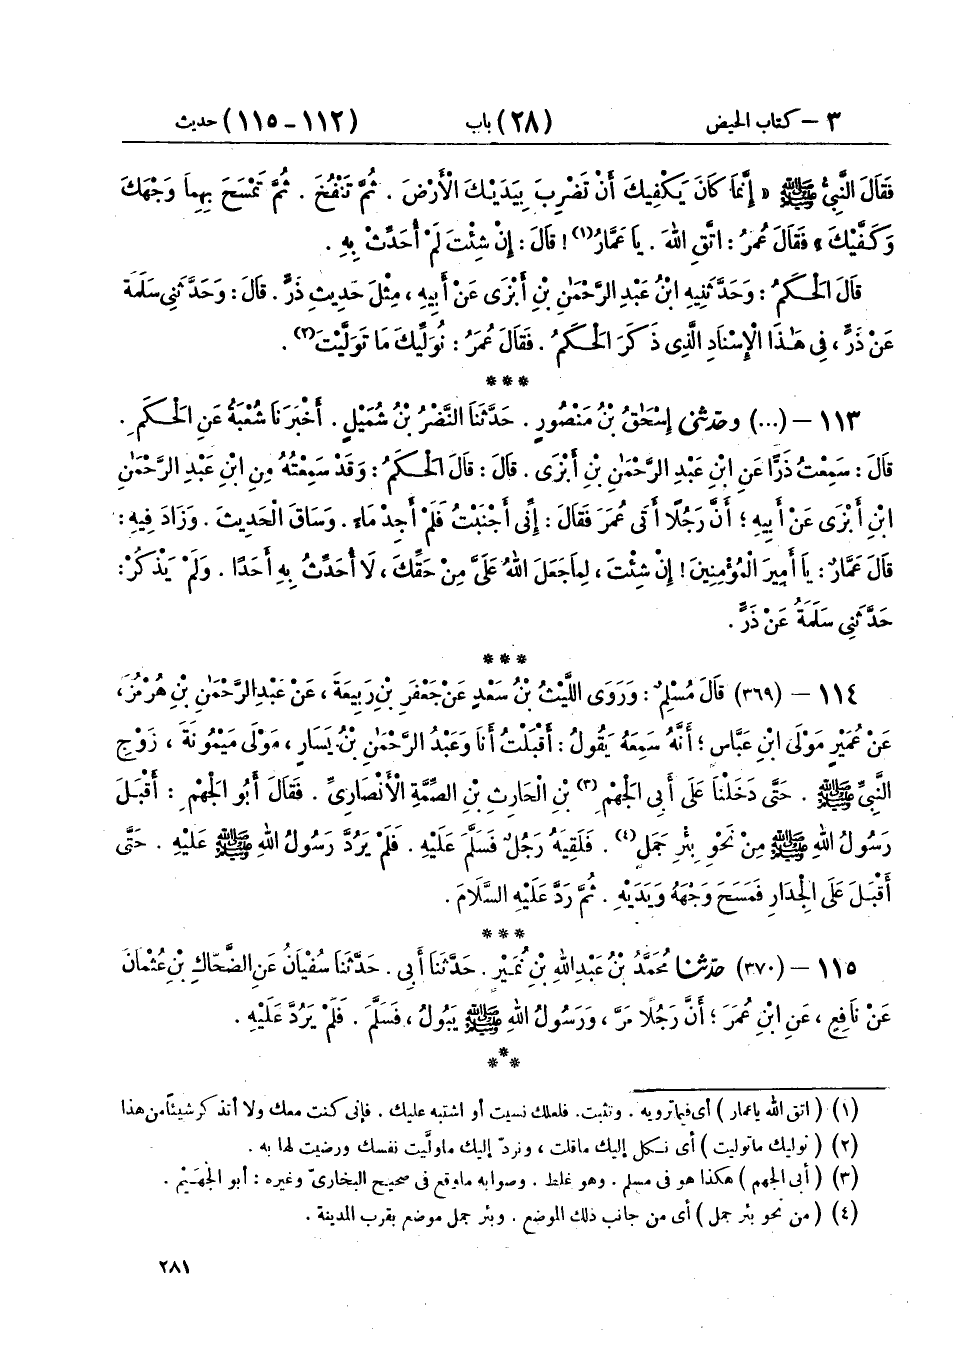 ٣ – كتاب الحيض (٢٨) باب (١١٢ – ١١٥) حديث
فَقَالَ النَّبِيُّ ﷺ « إِنَّمَا كَانَ يَكْفِيكَ أَنْ تَضْرِبَ بِيَدَيْكَ الْأَرْضَ . ثُمَّ تَنْفُخَ . ثُمَّ تَمْسَحَ بِهِمَا وَجْهَكَ
وَكَفَّيْكَ » فَقَالَ عُمَرُ : اتَّقِ اللهَ . يَا عَمَّارُ(١) ! قَالَ : إِنْ شِئْتَ لَمْ أُحَدِّثْ بِهِ .
قَالَ الْحَكَمُ : وَحَدَّثَنِيهِ ابْنُ عَبْدِ الرَّحْمَٰنِ بْنِ أَبْزَى عَنْ أَبِيهِ ، مِثْلَ حَدِيثِ ذَرٍّ . قَالَ : وَحَدَّثَنِي سَلَمَةُ
عَنْ ذَرٍّ ، فِي هَٰذَا الْإِسْنَادِ الَّذِي ذَكَرَ الْحَكَمُ . فَقَالَ عُمَرُ : نُوَلِّيكَ مَا تَوَلَّيْتَ(٢) .
***
١١٣ – (...) وحَدَّثَنِي إِسْحَاقُ بْنُ مَنْصُورٍ . حَدَّثَنَا النَّضْرُ بْنُ شُمَيْلٍ . أَخْبَرَنَا شُعْبَةُ عَنِ الْحَكَمِ .
قَالَ : سَمِعْتُ ذَرًّا عَنِ ابْنِ عَبْدِ الرَّحْمَٰنِ بْنِ أَبْزَى . قَالَ : قَالَ الْحَكَمُ : وَقَدْ سَمِعْتُهُ مِنِ ابْنِ عَبْدِ الرَّحْمَٰنِ
ابْنِ أَبْزَى عَنْ أَبِيهِ ؛ أَنَّ رَجُلًا أَتَى عُمَرَ فَقَالَ : إِنِّي أَجْنَبْتُ فَلَمْ أَجِدْ مَاءً . وَسَاقَ الْحَدِيثَ . وَزَادَ فِيهِ :
قَالَ عَمَّارٌ : يَا أَمِيرَ الْمُؤْمِنِينَ ! إِنْ شِئْتَ ، لِمَا جَعَلَ اللهُ عَلَيَّ مِنْ حَقِّكَ ، لَا أُحَدِّثُ بِهِ أَحَدًا . وَلَمْ يَذْكُرْ :
حَدَّثَنِي سَلَمَةُ عَنْ ذَرٍّ .
***
١١٤ – (٣٦٩) قَالَ مُسْلِمٌ : وَرَوَى اللَّيْثُ بْنُ سَعْدٍ عَنْ جَعْفَرِ بْنِ رَبِيعَةَ ، عَنْ عَبْدِ الرَّحْمَٰنِ بْنِ هُرْمُزَ ،
عَنْ عُمَيْرٍ مَوْلَى ابْنِ عَبَّاسٍ ؛ أَنَّهُ سَمِعَهُ يَقُولُ : أَقْبَلْتُ أَنَا وَعَبْدُ الرَّحْمَٰنِ بْنُ يَسَارٍ ، مَوْلَى مَيْمُونَةَ ، زَوْجِ
النَّبِيِّ ﷺ . حَتَّى دَخَلْنَا عَلَى أَبِي الْجَهْمِ(٣) بْنِ الْحَارِثِ بْنِ الصِّمَّةِ الْأَنْصَارِيِّ . فَقَالَ أَبُو الْجَهْمِ : أَقْبَلَ
رَسُولُ اللهِ ﷺ مِنْ نَحْوِ بِئْرِ جَمَلٍ(٤) . فَلَقِيَهُ رَجُلٌ فَسَلَّمَ عَلَيْهِ . فَلَمْ يَرُدَّ رَسُولُ اللهِ ﷺ عَلَيْهِ . حَتَّى
أَقْبَلَ عَلَى الْجِدَارِ فَمَسَحَ وَجْهَهُ وَيَدَيْهِ . ثُمَّ رَدَّ عَلَيْهِ السَّلَامَ .
***
١١٥ – (٣٧٠) حَدَّثَنَا مُحَمَّدُ بْنُ عَبْدِ اللهِ بْنِ نُمَيْرٍ . حَدَّثَنَا أَبِي . حَدَّثَنَا سُفْيَانُ عَنِ الضَّحَّاكِ بْنِ عُثْمَانَ
عَنْ نَافِعٍ ، عَنِ ابْنِ عُمَرَ ؛ أَنَّ رَجُلًا مَرَّ ، وَرَسُولُ اللهِ ﷺ يَبُولُ ، فَسَلَّمَ . فَلَمْ يَرُدَّ عَلَيْهِ .
***
(١) ( اتق الله يا عمار ) أى فيما ترويه . وتثبت. فلعلك نسيت أو اشتبه عليك . فإنى كنت معك ولا أتذكر شيئاً من هذا
(٢) ( نوليك ما توليت ) أى نكل إليك ما قلت ، ونردّ إليك ماولَّيت نفسك ورضيت لها به .
(٣) ( أبى الجهم ) هكذا هو فى مسلم . وهو غلط . وصوابه ماوقع فى صحيح البخارىّ وغيره : أبو الْجُهَيْم .
(٤) ( من نحو بئر جمل ) أى من جانب ذلك الموضع . وبئر جمل موضع بقرب المدينة .
٢٨١